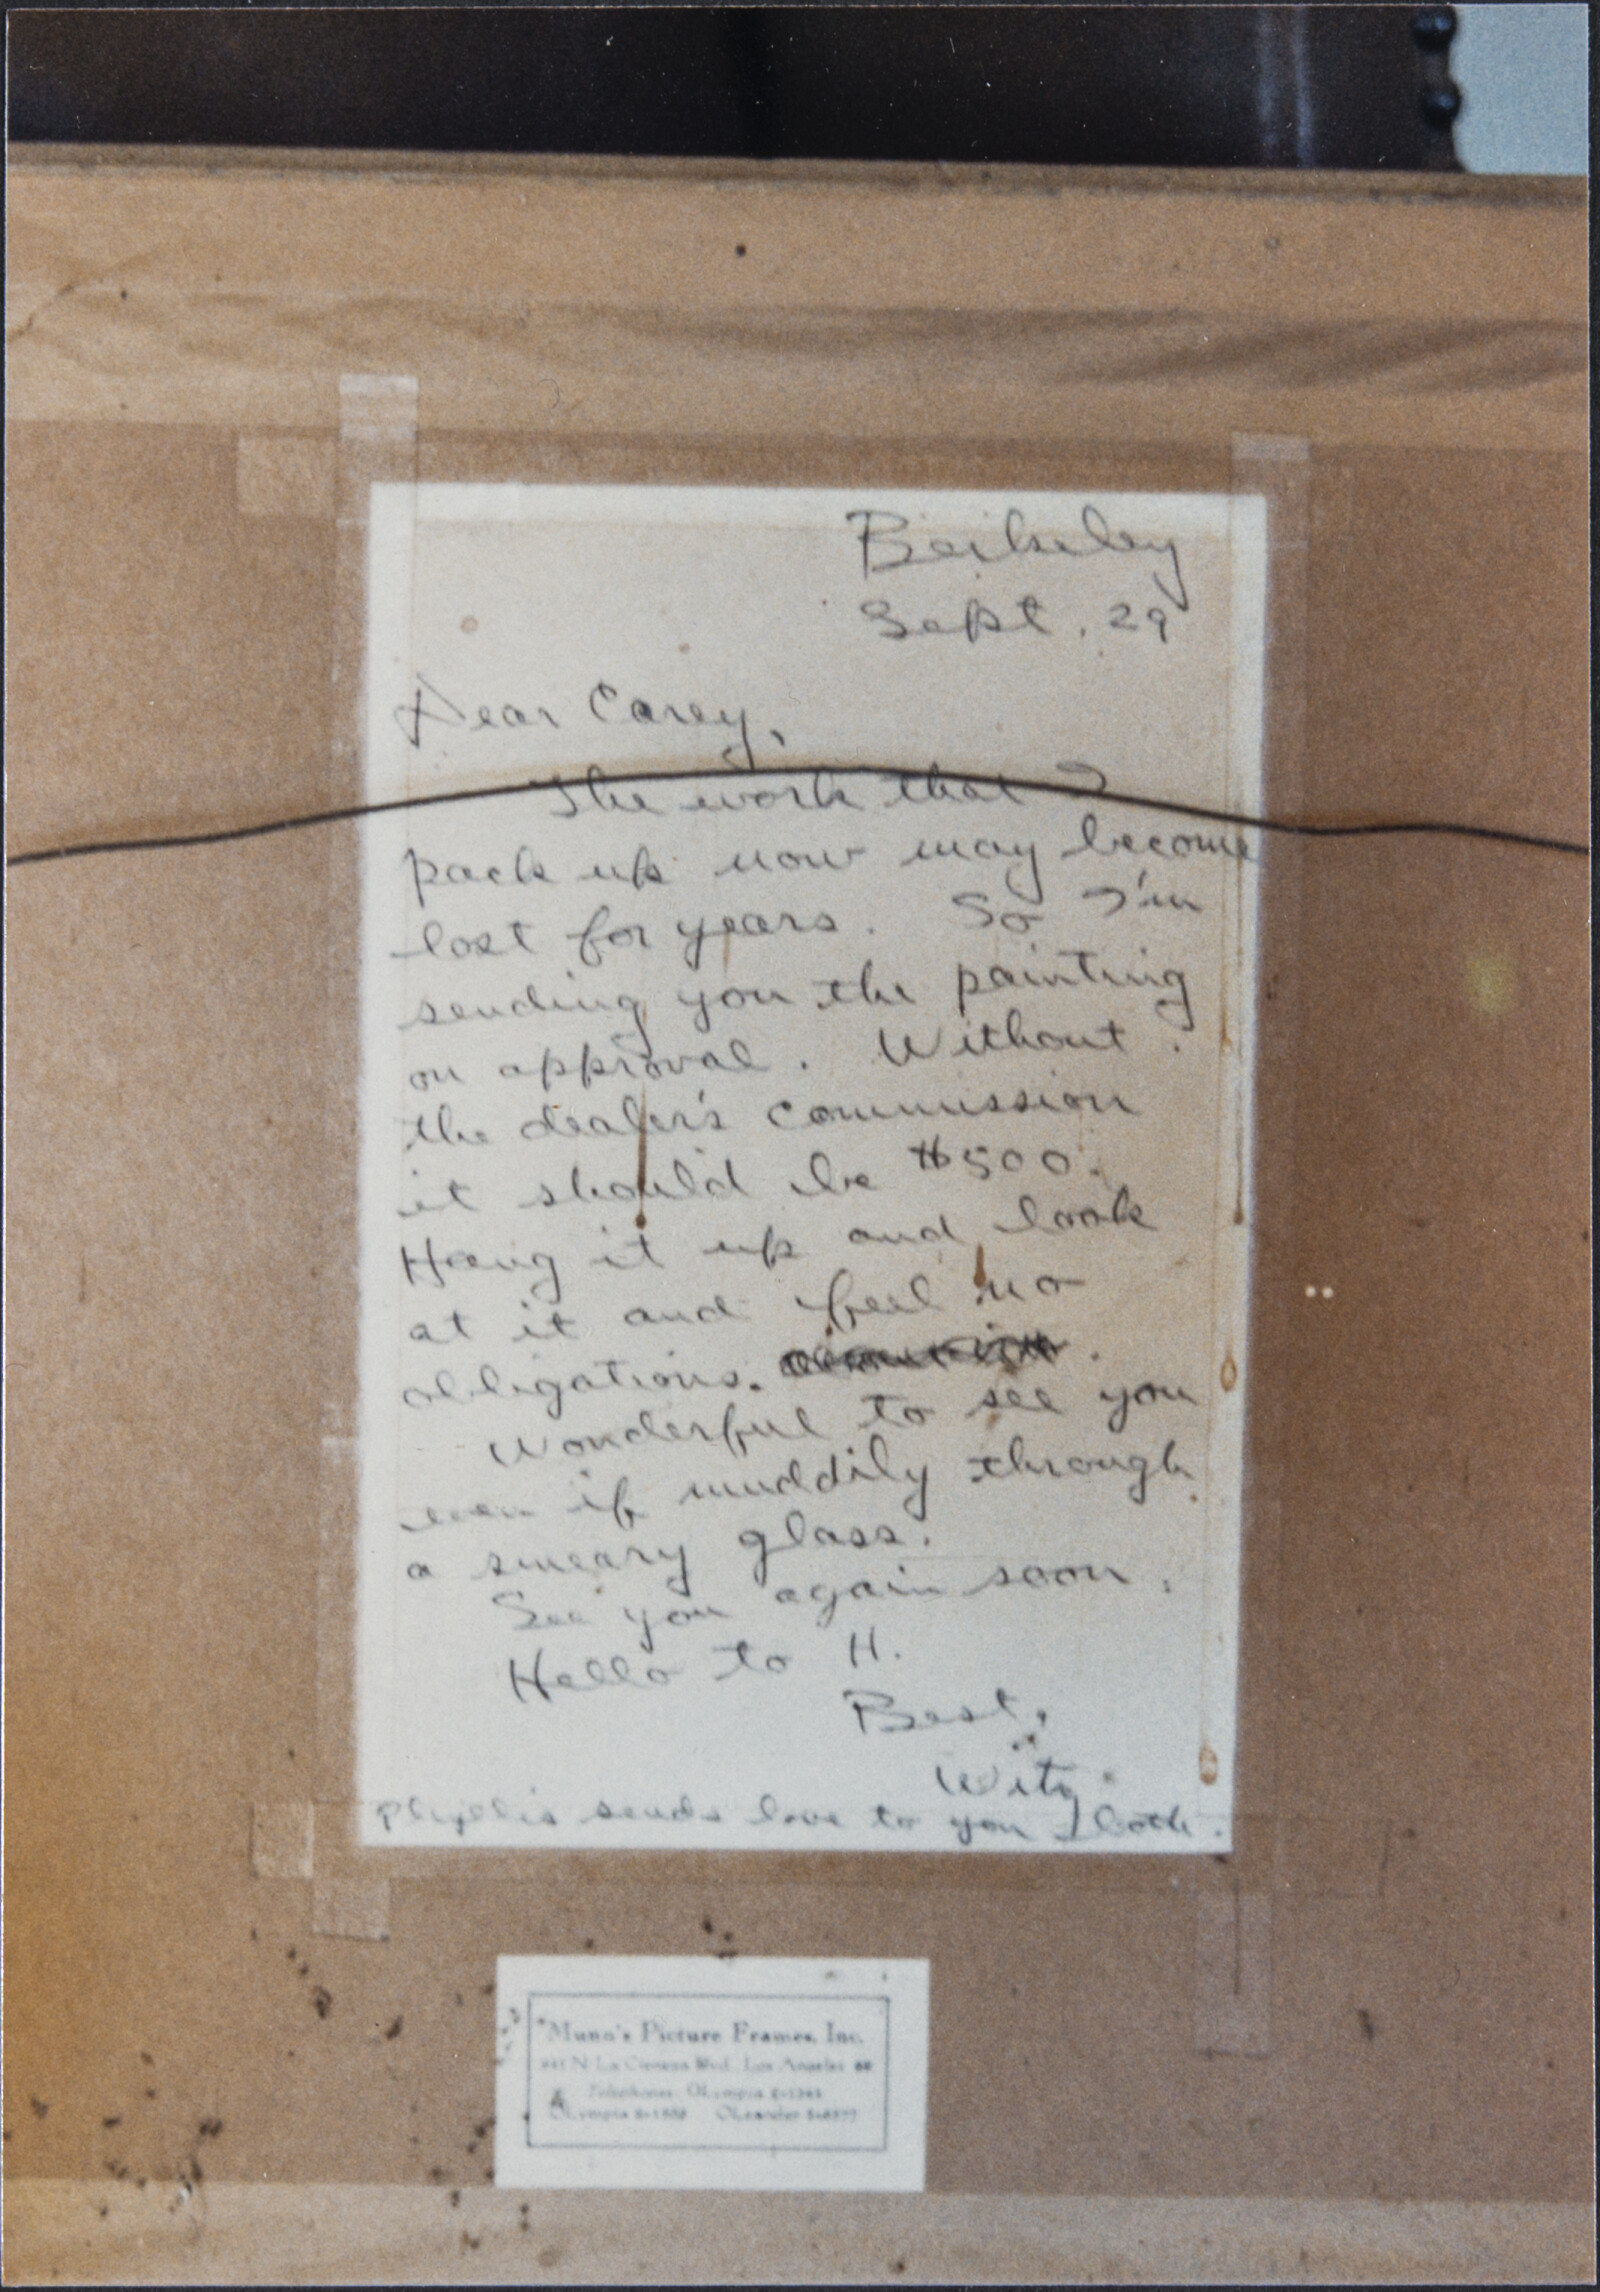 Berkeley
Sept. 29
Dear Carey,
The work that I
pack up now may become
lost for years. So I'm
sending you the painting
on approval. Without
the dealer's commission
it should be $500.
Hang it up and look
at it and feel no
obligations.
Wonderful to see you
even if muddily through
a smeary glass.
See you again soon.
Hello to H.
Best,
Witz
Phyllis sends love to you both.
Munn's Picture Frames, Inc.
N. La Cienega Blvd., Los Angeles
Telephones: OLympia
OLympia OLeander